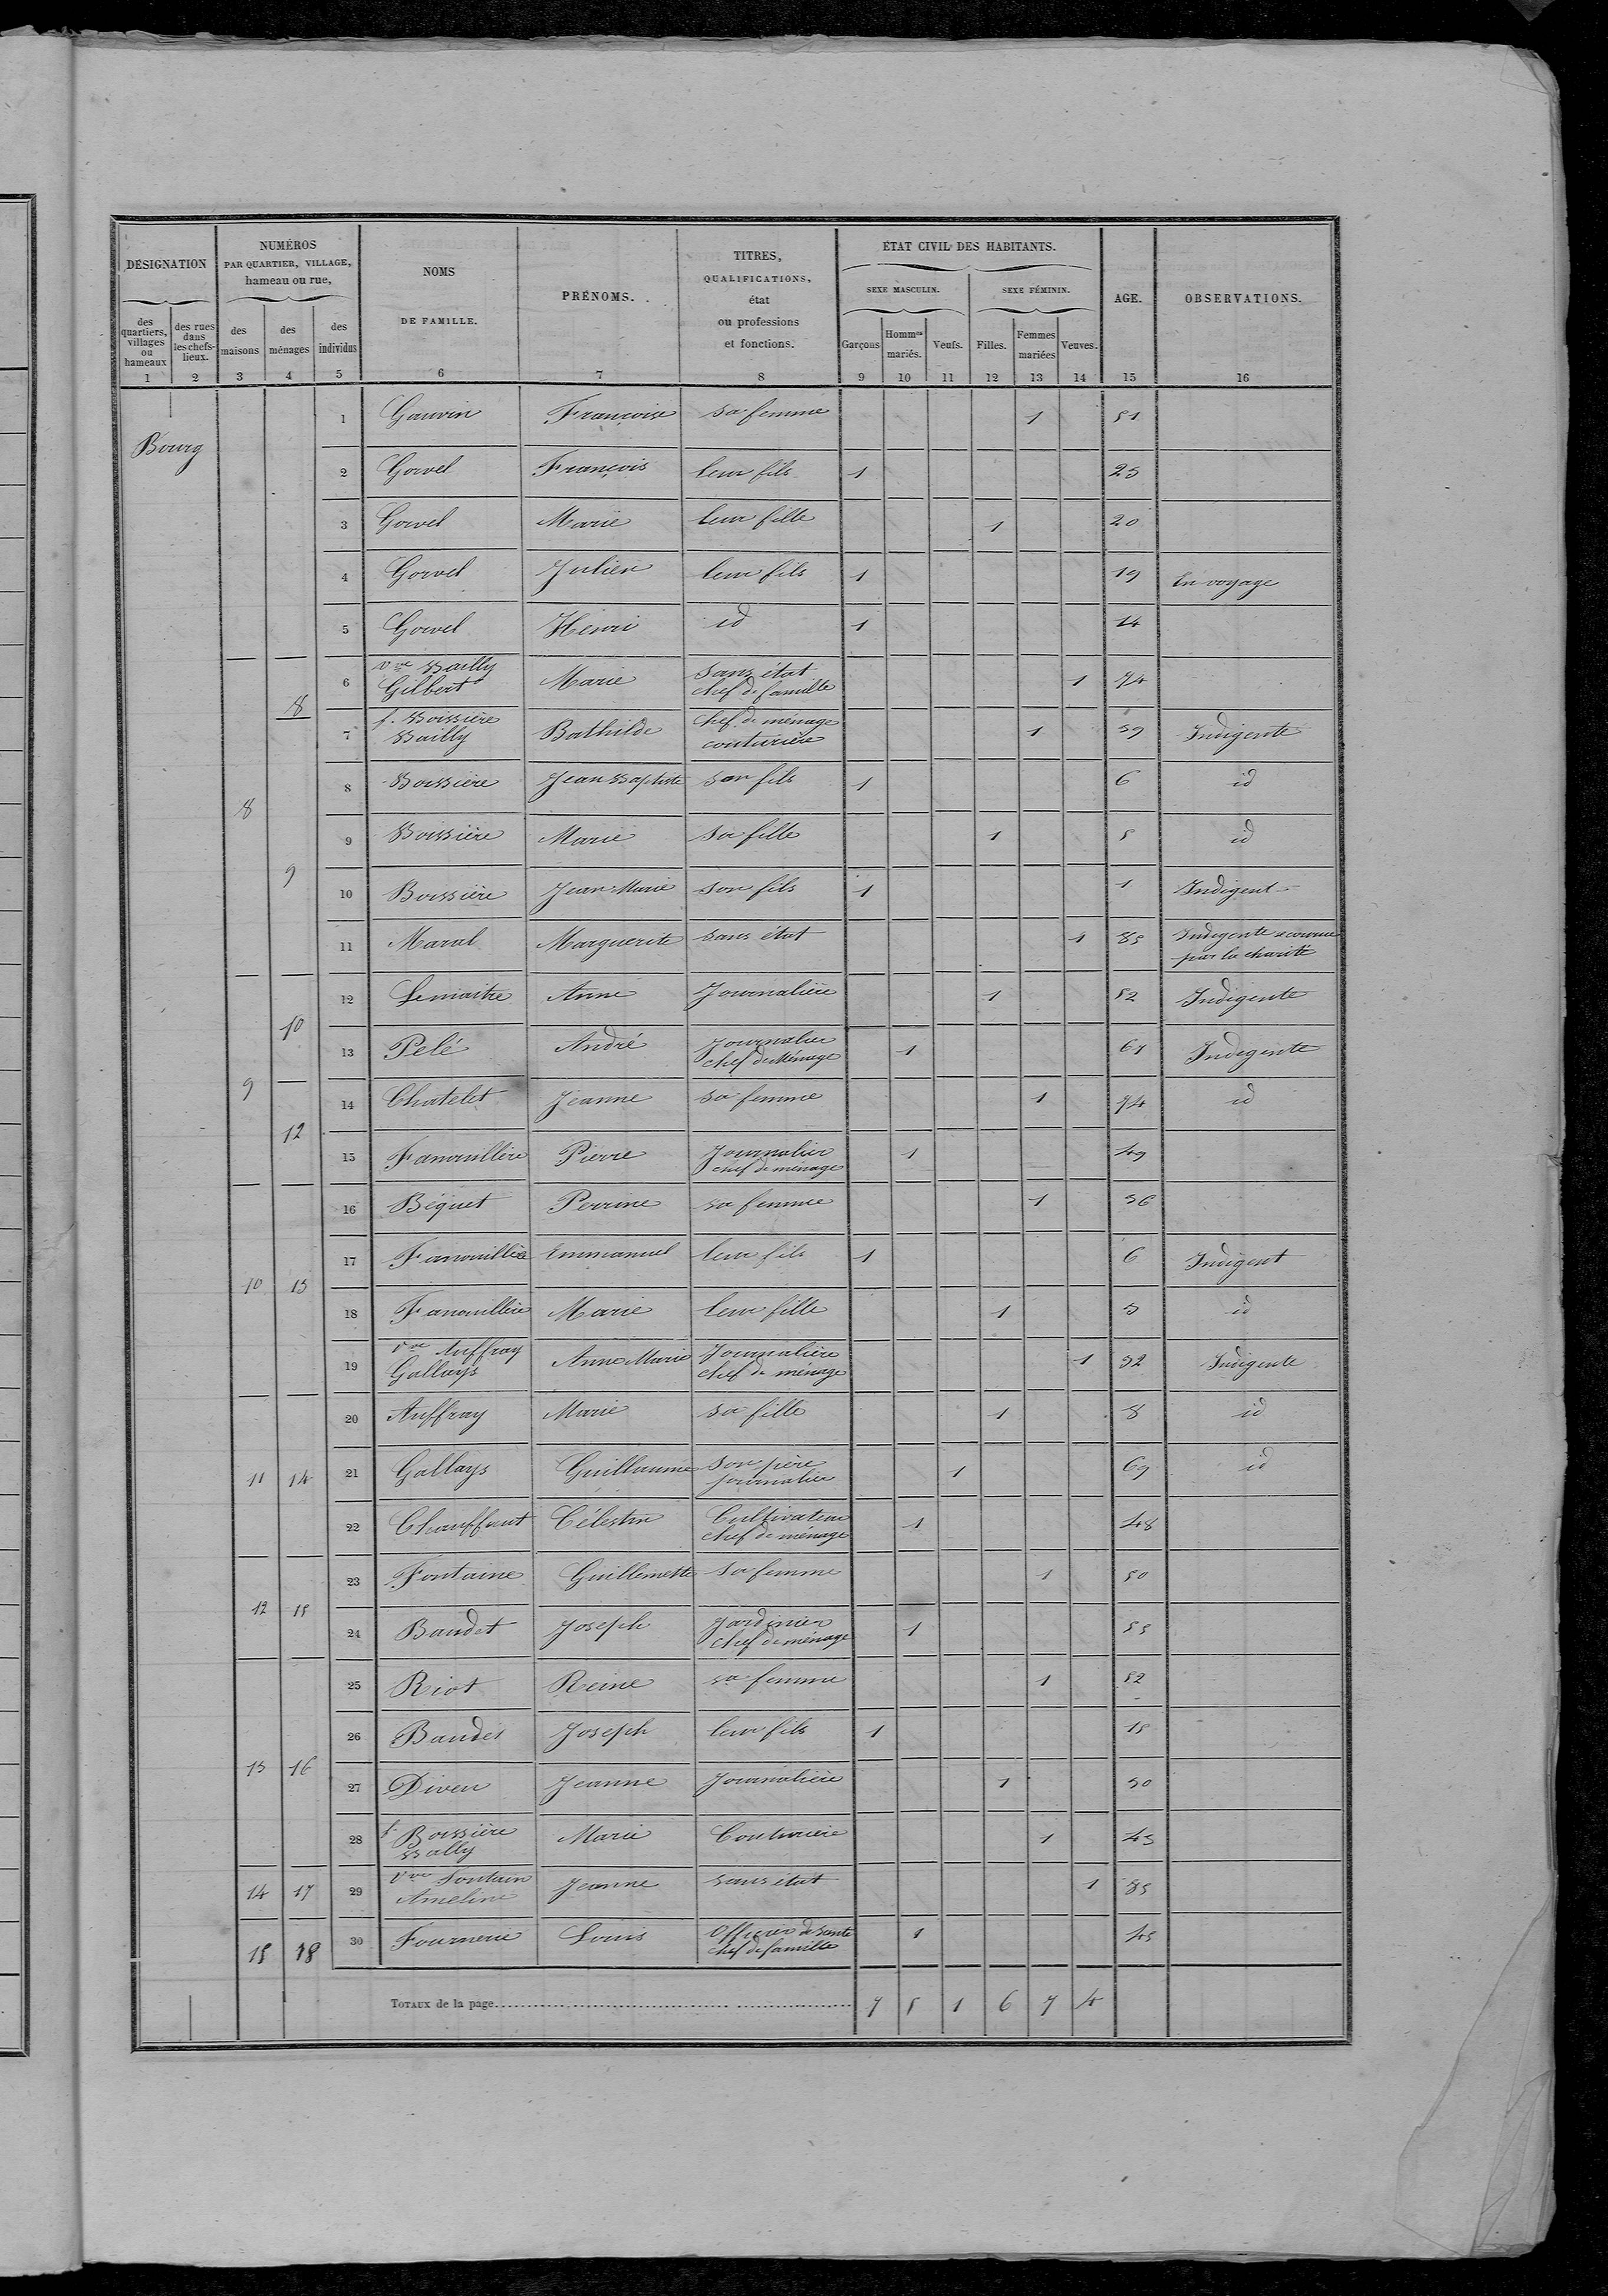 DÉSIGNATION
NUMÉROS
PAR QUARTIER, VILLAGE,
hameau ou rue,
NOMS
DE FAMILLE.
PRÉNOMS.
TITRES,
QUALIFICATIONS,
état
ou professions
et fonctions.
ÉTAT CIVIL DES HABITANTS.
SEXE MASCULIN.
SEXE FÉMININ.
AGE.
OBSERVATIONS.
des quartiers, villages ou hameaux
des rues dans les chefs-lieux.
des maisons
des ménages
des individus
Garçons
Hommes mariés.
Veufs.
Filles.
Femmes mariées
Veuves.
1 2 3 4 5 6 7 8 9 10 11 12 13 14 15 16
Bourg
1 Gauvin Françoise sa femme 1 51
2 Gorvel François leur fils 1 23
3 Gorvel Marie leur fille 1 20
4 Gorvel Julien leur fils 1 19 En voyage
5 Gorvel Henri id 1 14
8 6 Vve Bailly Gilbert Marie Sans état chef de famille 1 74
8 9 7 f. Boissière Bailly Bathilde Chef de ménage couturière 1 39 Indigente
8 Boissière Jean Baptiste son fils 1 6 id
9 Boissière Marie sa fille 1 5 id
10 Boissière Jean Marie son fils 1 1 Indigent
11 Marguerite sans état 1 83 Indigente par la charité
10 12 Lemaitre Anne Journalière 1 52 Indigente
9 13 Pelé André Journalier chef de Ménage 1 61 Indigente
12 14 Chatelet Jeanne sa femme 1 74 id
15 Fanouillère Pierre Journalier chef de ménage 1 49
16 Béquet Perrine sa femme 1 36
10 13 17 Fanouillère Emmanuel leur fils 1 6 Indigent
18 Fanouillère Marie leur fille 1 3 id
19 Vve Auffray Gallays Anne Marie Journalière chef de ménage 1 32 Indigente
20 Auffray Marie sa fille 1 8 id
11 14 21 Gallays Guillaume Son père journalier 1 69 id
22 Célestin Cultivateur chef de ménage 1 48
23 Fontaine Guillemette Sa femme 1 50
12 15 24 Baudet Joseph Jardinier chef de ménage 1 53
25 Riot Reine sa femme 1 52
26 Baudet Joseph leur fils 1 15
13 16 27 Diveu Jeanne Journalière 1 30
28 f. Boissière Bally Marie Couturière 1 43
14 17 29 Vve Ameline Jeanne sans état 1 83
15 18 30 Fournerie Louis Officier de Santé chef de famille 1 43
TOTAUX de la page 7 5 1 6 7 4